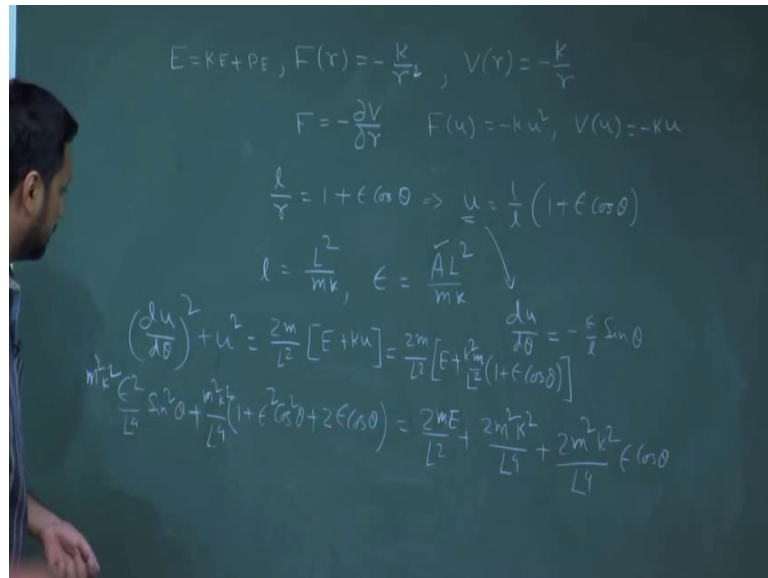 E=KE+PE, F(r)=-k/r², V(r)=-k/r
F=-∂V/∂r F(u)=-ku², V(u)=-ku
l/r=1+ϵCosθ => u=1/l(1+ϵCosθ)
l=L²/mk, ϵ=AL²/mk
(du/dθ)²+u²=2m/L²[E+ku]=2m/L²[E+k²m/L²(1+ϵCosθ)] du/dθ=-ϵ/l Sinθ
m²k²ϵ²/L⁴ Sin²θ+m²k²/L⁴(1+ϵ²Cos²θ+2ϵCosθ)=2mE/L²+2m²k²/L⁴+2m²k²/L⁴ϵCosθ